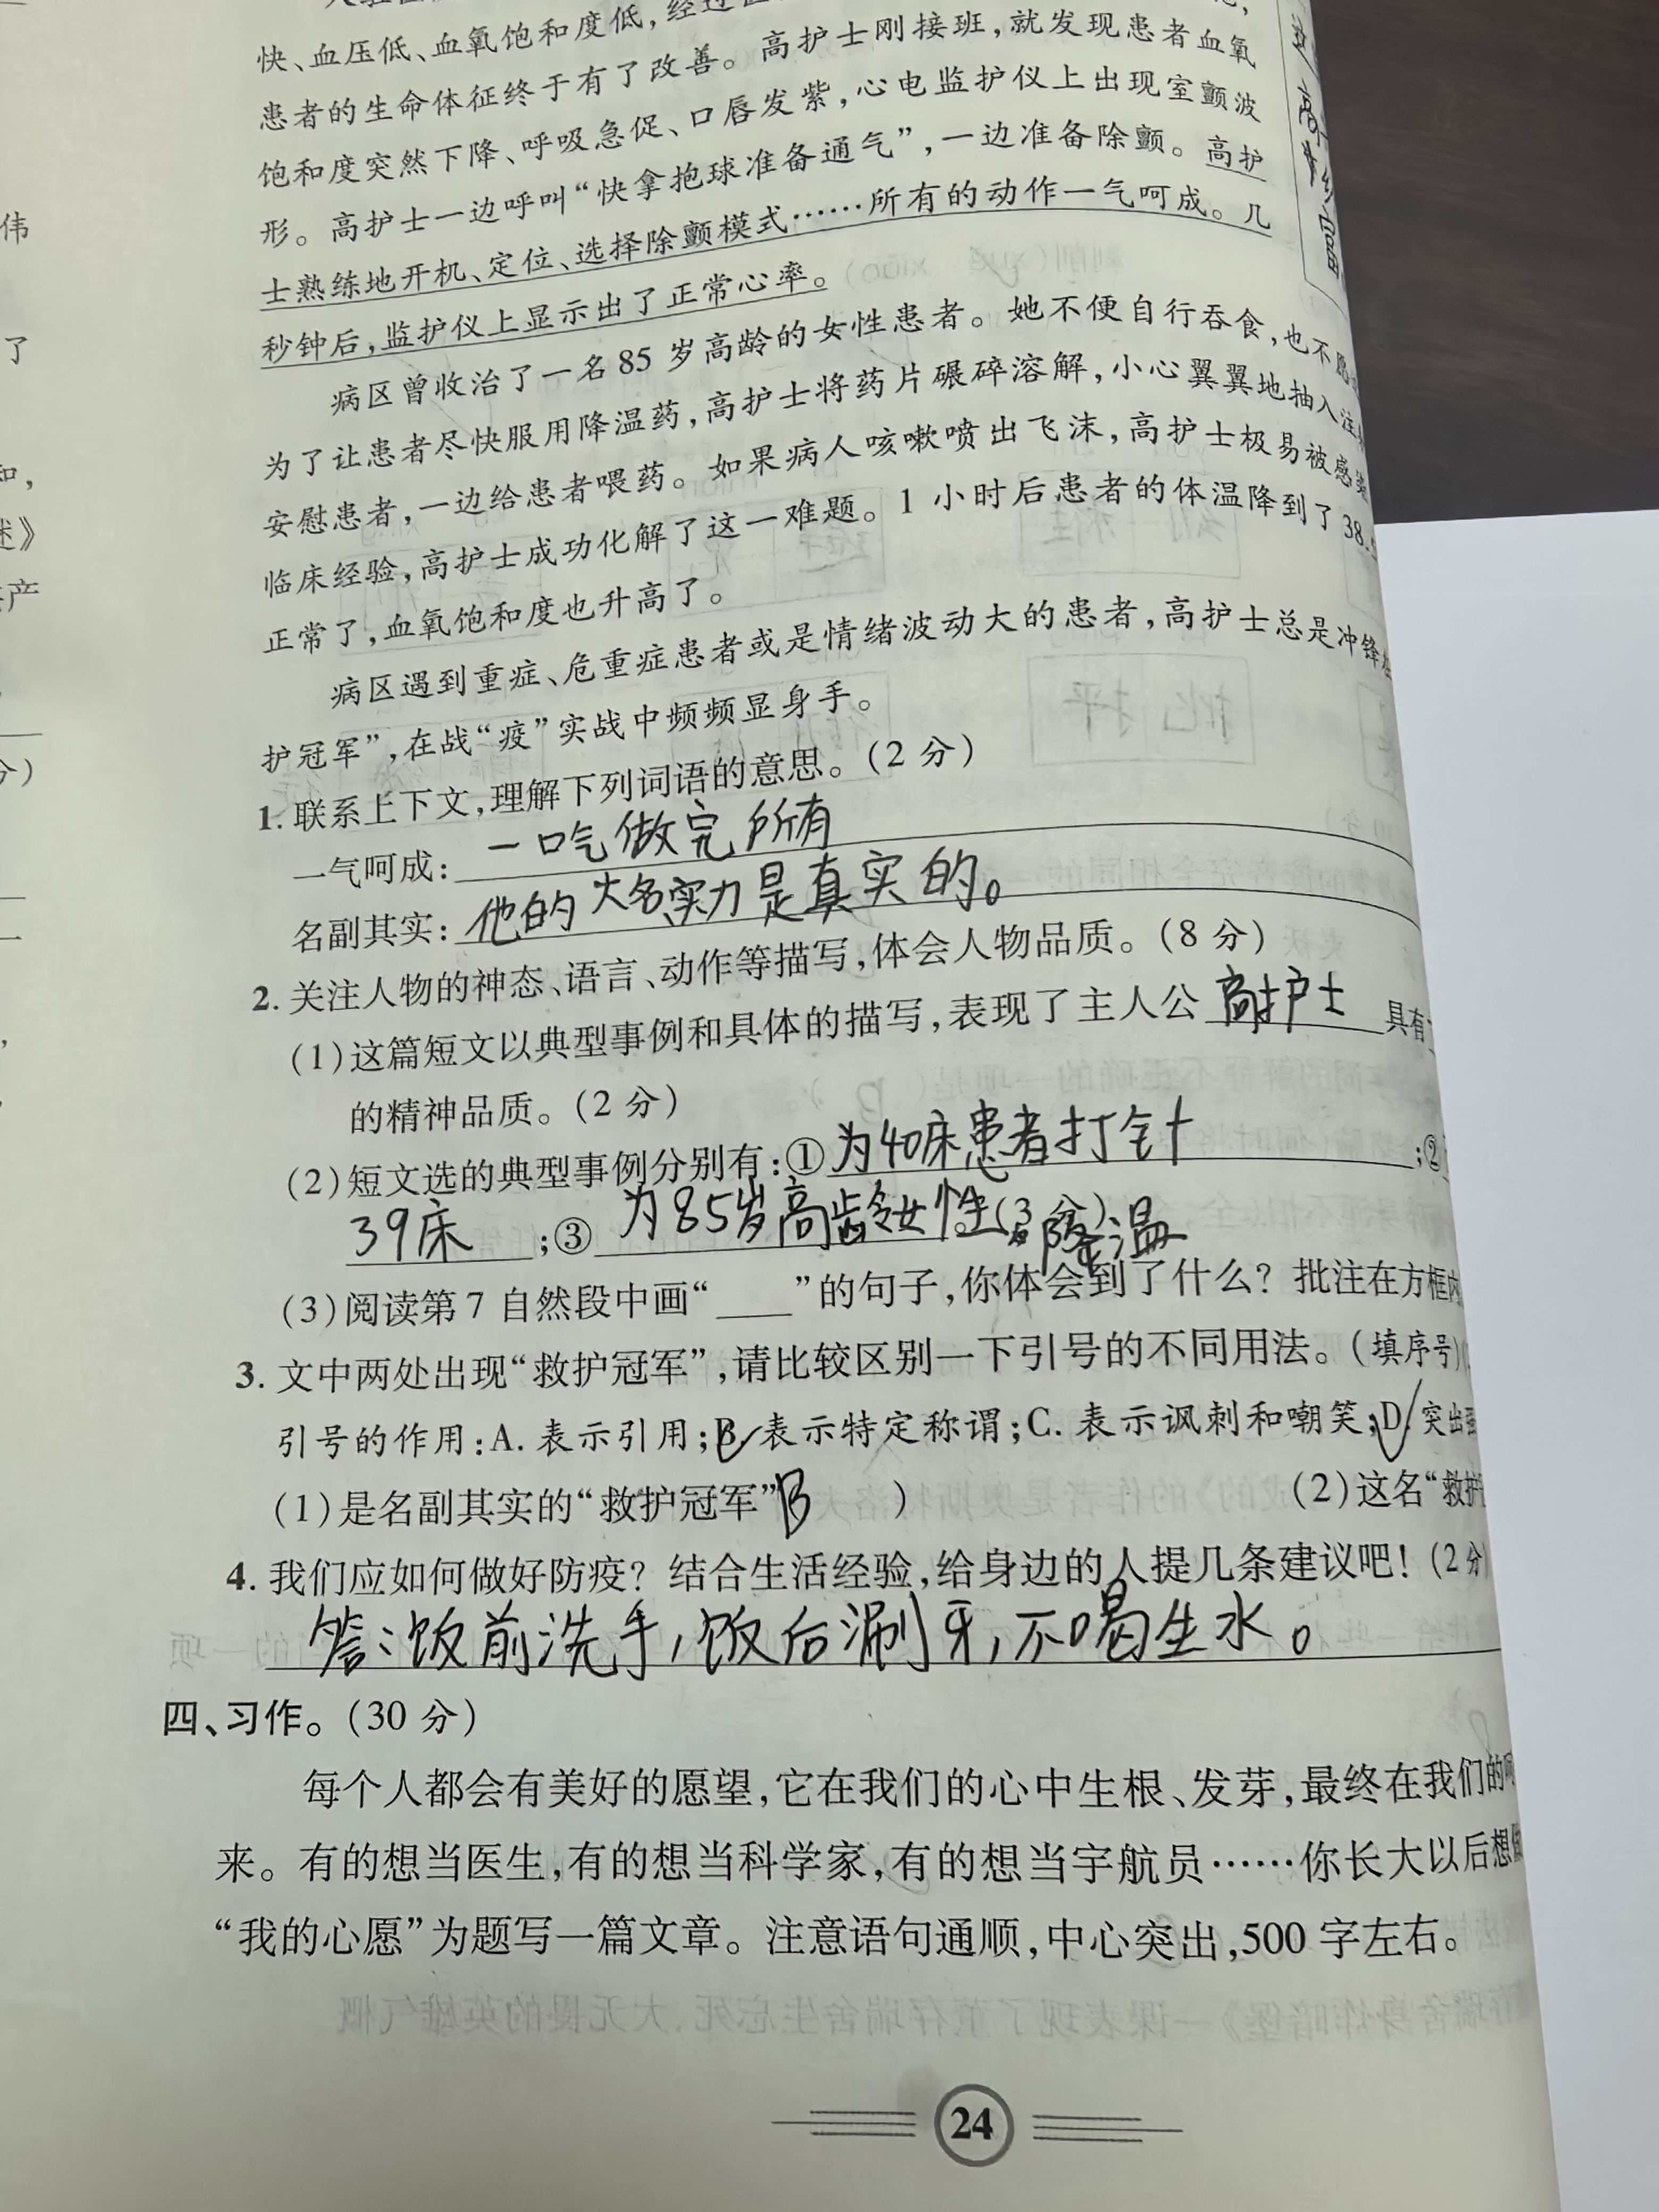 快、血压低、血氧饱和度低,经过
患者的生命体征终于有了改善。高护士刚接班,就发现患者血氧
饱和度突然下降、呼吸急促、口唇发紫,心电监护仪上出现室颤波
形。高护士一边呼叫“快拿抱球准备通气”,一边准备除颤。高护
士熟练地开机、定位、选择除颤模式……所有的动作一气呵成。几
秒钟后,监护仪上显示出了正常心率。
病区曾收治了一名85岁高龄的女性患者。她不便自行吞食,也不愿
为了让患者尽快服用降温药,高护士将药片碾碎溶解,小心翼翼地抽入注
安慰患者,一边给患者喂药。如果病人咳嗽喷出飞沫,高护士极易被感染
临床经验,高护士成功化解了这一难题。1小时后患者的体温降到了38.5
正常了,血氧饱和度也升高了。
病区遇到重症、危重症患者或是情绪波动大的患者,高护士总是冲锋
护冠军”,在战“疫”实战中频频显身手。
1. 联系上下文,理解下列词语的意思。(2分)
一气呵成:一口气做完所有
名副其实:他的大名、实力是真实的。
2. 关注人物的神态、语言、动作等描写,体会人物品质。(8分)
(1)这篇短文以典型事例和具体的描写,表现了主人公高护士具有
的精神品质。(2分)
(2)短文选的典型事例分别有:①为40床患者打针;②
39床;③为85岁高龄女性降温(3分)
(3)阅读第7自然段中画“___”的句子,你体会到了什么?批注在方框内
3. 文中两处出现“救护冠军”,请比较区别一下引号的不同用法。(填序号)
引号的作用:A. 表示引用;B. 表示特定称谓;C. 表示讽刺和嘲笑;D. 突出强
(1)是名副其实的“救护冠军”B ) (2)这名“救护
4. 我们应如何做好防疫?结合生活经验,给身边的人提几条建议吧!(2分
答:饭前洗手,饭后涮牙,不喝生水。
四、习作。(30分)
每个人都会有美好的愿望,它在我们的心中生根、发芽,最终在我们的
来。有的想当医生,有的想当科学家,有的想当宇航员……你长大以后想做
“我的心愿”为题写一篇文章。注意语句通顺,中心突出,500字左右。
24
伟
了
和,
迷》
产
分)